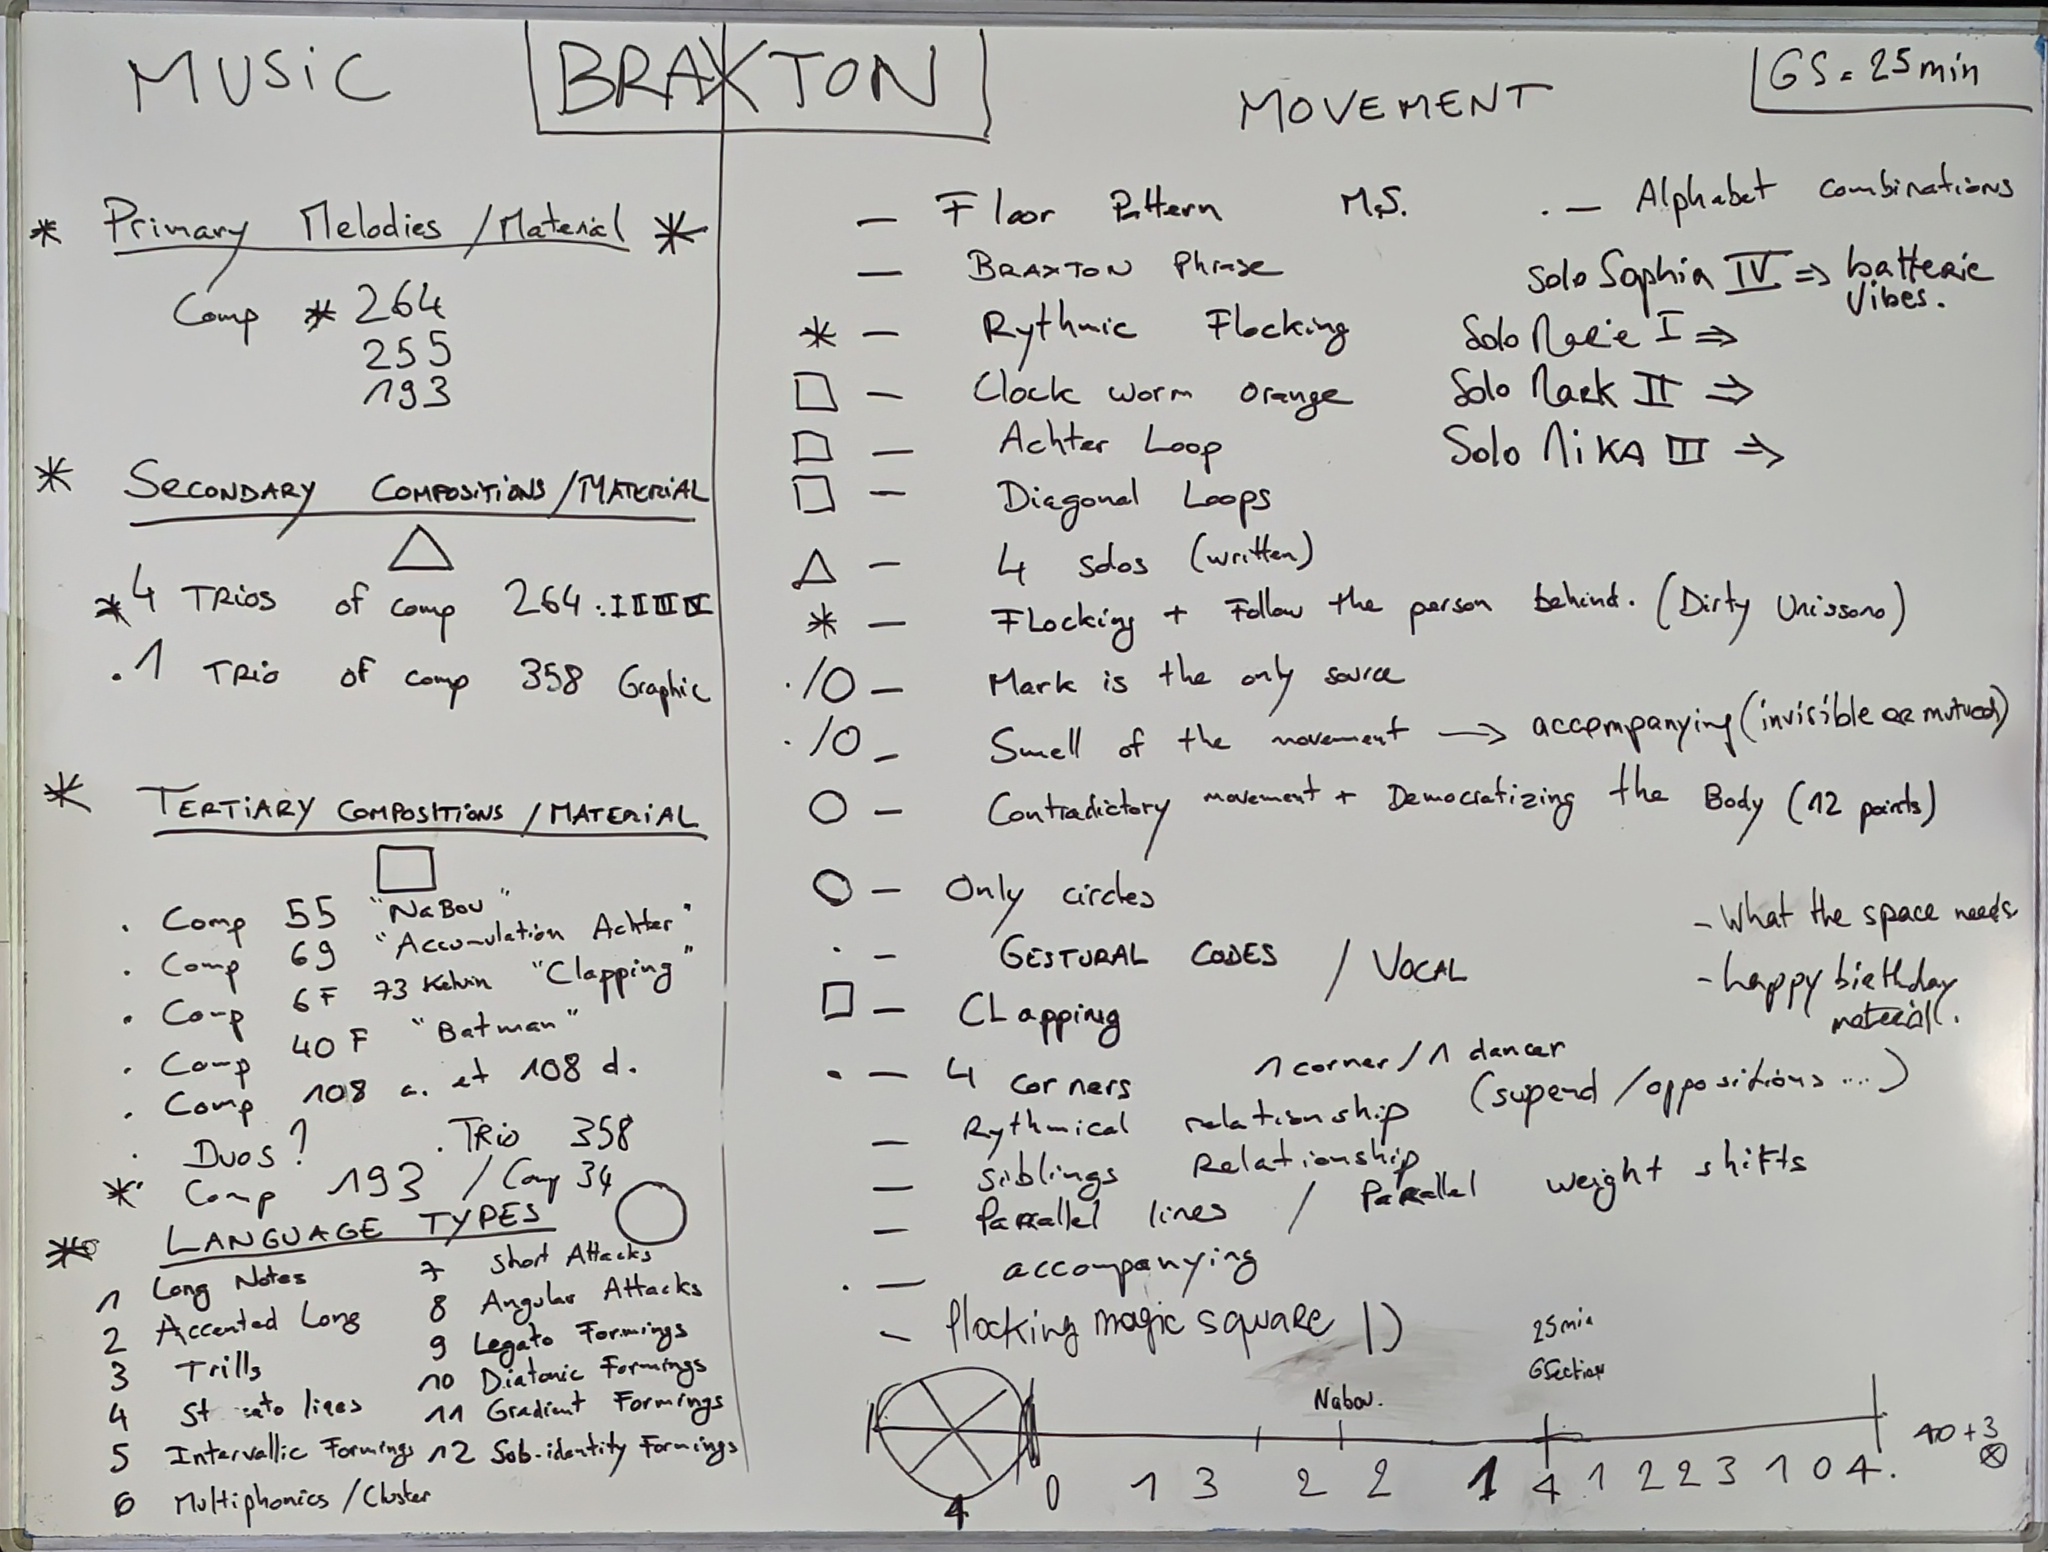 MUSiC
BRAXTON
MOVEMENT
GS = 25 min
* Primary Melodies / Material *
Comp * 264
255
193
* SECONDARY COMPOSITIONS / MATERIAL
* 4 TRIOS of comp 264 : I II III IV
. 1 TRIO of comp 358 Graphic
* TERTIARY COMPOSITIONS / MATERIAL
. Comp 55 "NaBou"
. Comp 69 "Accumulation Achter"
. Comp 6F 73 Kelvin "Clapping"
. Comp 40F "Batman"
. Comp 108 a. et 108 d.
. Duos? . TRIO 358
* Comp 193 / Comp 34
* LANGUAGE TYPES
1 Long Notes
2 Accented Long
3 Trills
4 St cato lines
5 Intervallic Formings
6 Multiphonics / Cluster
7 Short Attacks
8 Angular Attacks
9 Legato Formings
10 Diatonic Formings
11 Gradient Formings
12 Sub-identity Formings
— Floor Pattern M.S.
— BRAXTON Phrase
* — Rythmic Flocking
— Clock worm orange
— Achter Loop
— Diagonal Loops
— 4 solos (written)
* — FLocking + Follow the person behind. (Dirty Unissono)
. / O — Mark is the only source
. / O — Smell of the movement → accompanying (invisible OR mutual)
O — Contradictory movement + Democratizing the Body (12 points)
O — Only circles
. — GESTURAL CODES / VOCAL
— CLapping
. — 4 corners 1 corner / 1 dancer
— Rythmical relationship (supend / oppositions ....)
— Siblings Relationship
— Parallel lines / Parallel weight shifts
. — accompanying
— flocking magic square 1)
. — Alphabet combinations
Solo Sophia IV ⇒ batterie
Vibes.
Solo Marie I ⇒
Solo Mark II ⇒
Solo MiKA III ⇒
- What the space needs
- happy birthday
material.
25 min
GSection
Nabou.
4 0 1 3 2 2 1 4 1 2 2 3 1 0 4.
40 + 3